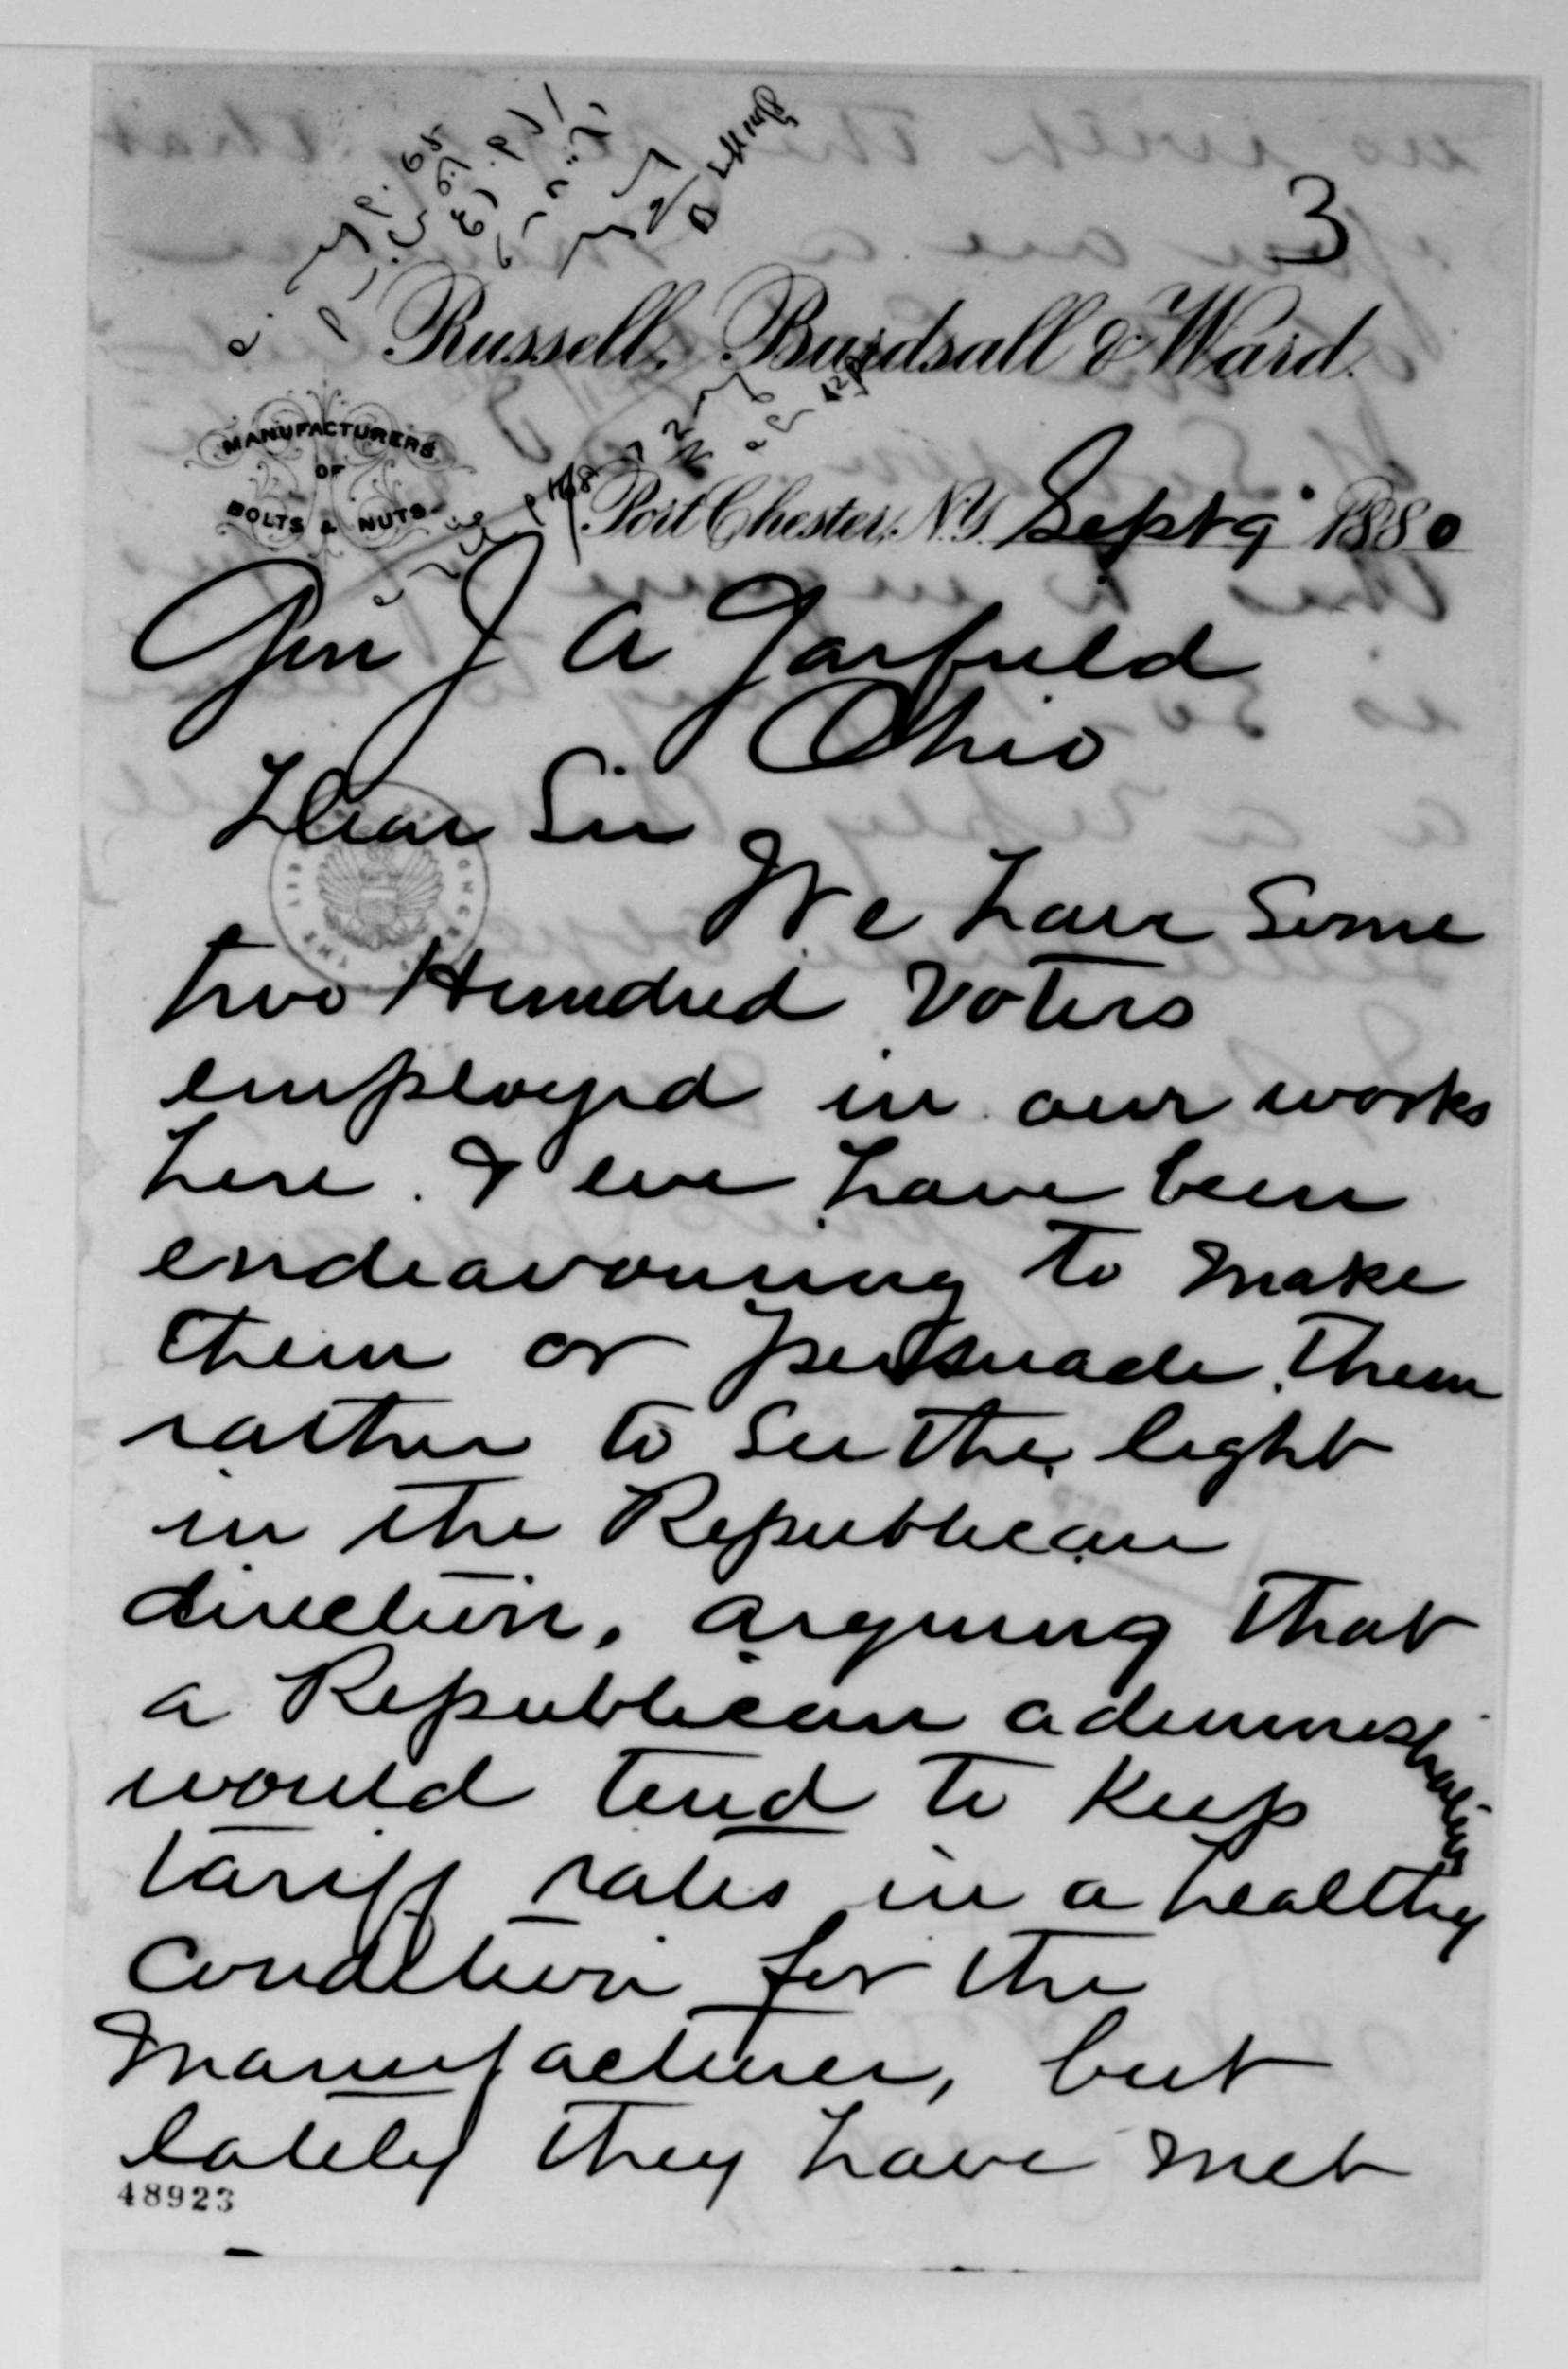 3
Russell, Burdsall & Ward.
MANUFACTURERS
OF
BOLTS & NUTS
Port Chester, N.Y. Sept 9" 1880
Gen J A Garfield
Ohio
Dear Sir
We have some
two Hundred voters
employed in our works
here. & we have been
endeavouring to make
them or persuade them
rather to see the light
in the Republican
direction, arguing that
a Republican administration
would tend to keep
tariff rates in a healthy
condition for the
manufacturer, but
lately they have met
48923